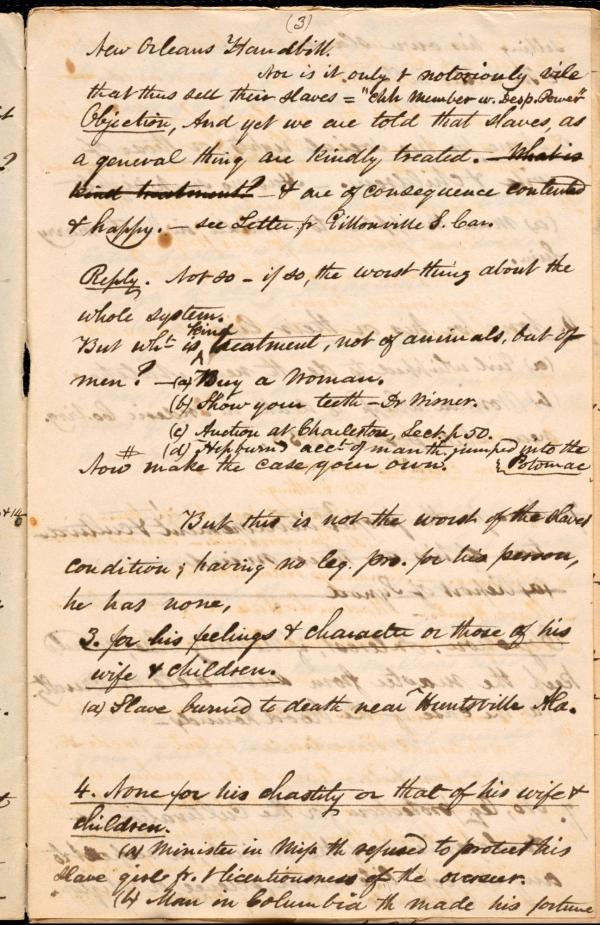 (3)
New Orleans Handbill.
Nor is it only & notoriously vile
that thus sell their slaves = "chh member w. Desp. Power"
Objection, And yet we are told that slaves, as
a general thing are kindly treated. – What is
kind treatment? – & are of consequence contented
& happy. – see Letter fr Gillonville S. Car.
Reply. Not so – if so, the worst thing about the
whole system.
But wht is kind treatment, not of animals, but of
men? – (a) Buy a Woman.
(b) Show your teeth – Dr Wisner.
(c) Auction at Charleston, Lect. p 50.
(d) Hepburn's acct of man th. jumped into the
Potomac
# Now make the case your own.
But this is not the worst of the slaves
condition; having no leg. pro. for his person,
he has none,
3. for his feelings & character or those of his
wife & children.
(a) Slave burned to death near Huntsville Ala.
4. None for his chastity or that of his wife &
children.
(a) Minister in Miss th refused to protect his
slave girl fr. & licentiousness of the overseer.
(b) Man in Columbia th made his fortune